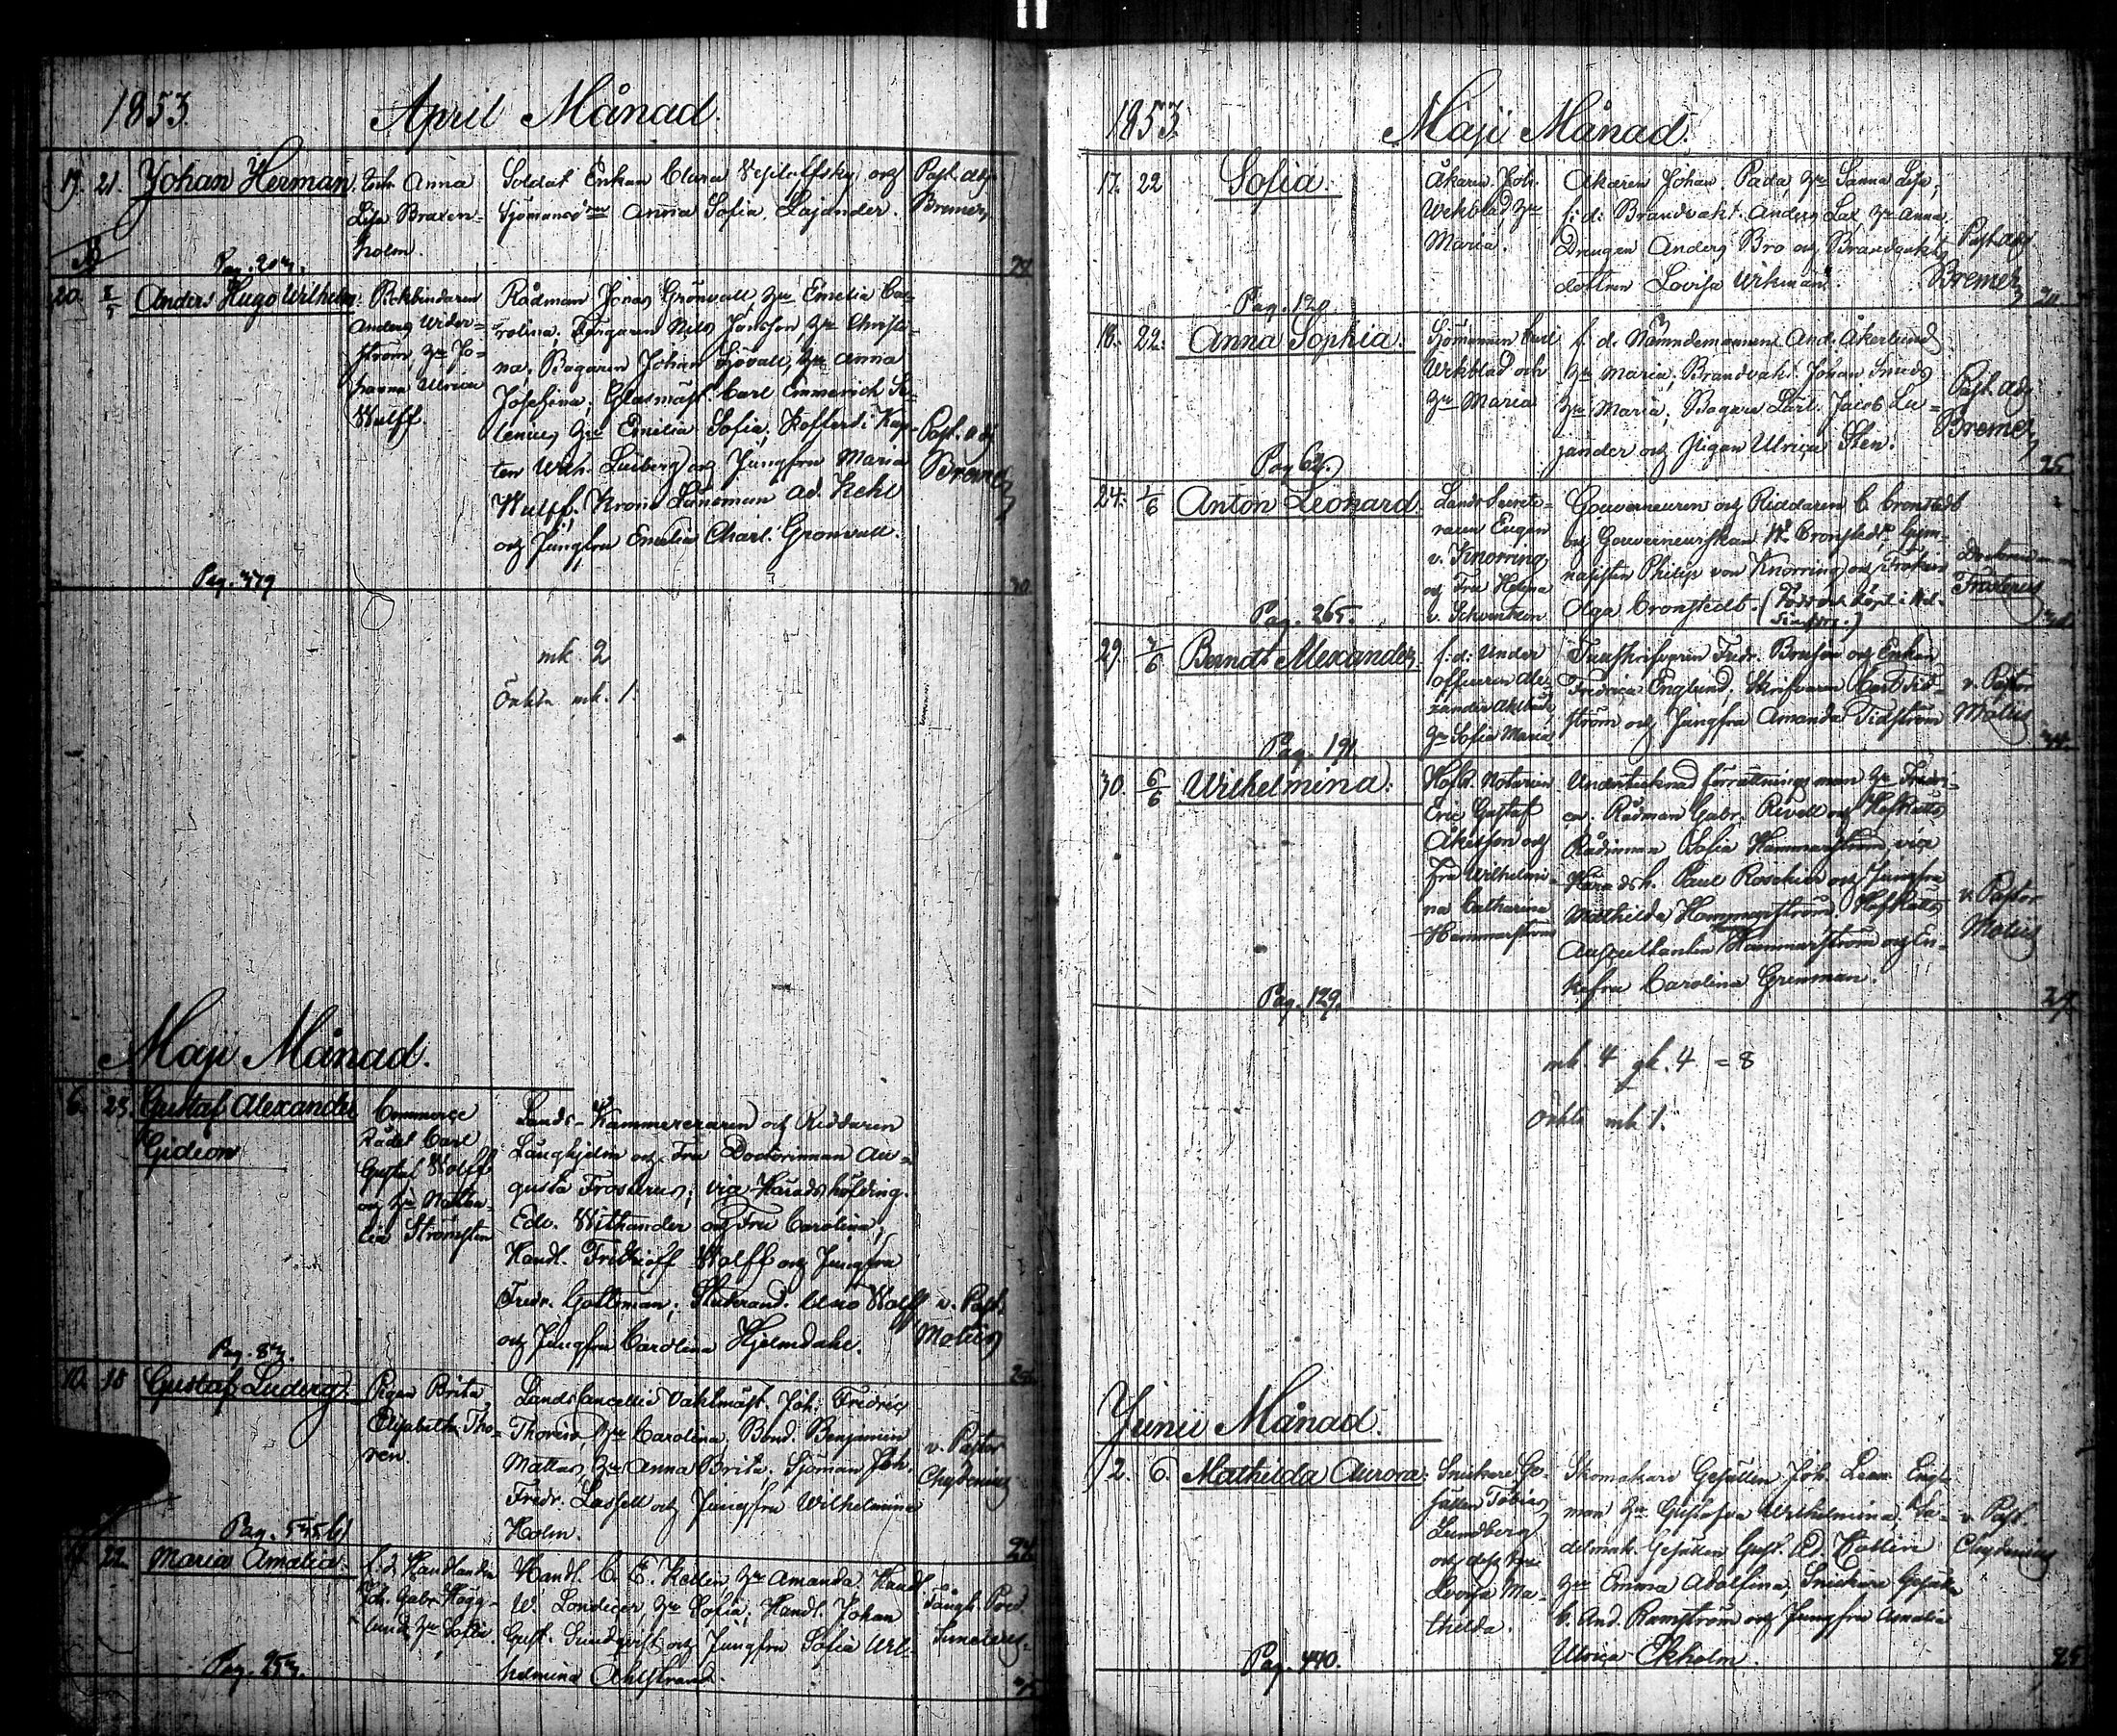 1853. April Månad.
19. 21. Johan Herman. Enk. Anna
Lisa Braxen-
holm.
Soldat Enkan Clara och
Sjömansd:n Anna Sofia Lajander.
Past. adj.
Bremer
Pag. 203. 28
20. 8/5 Anders Hugo Wilhelm. Bokbindaren
Anders Wider-
ström, h:u Jo-
hanna Ulrica
Wulff.
Rådman Jonas Grönvall, h:u Emelia Ca-
rolina; Färgaren Nils Jansson, h:u Christi-
na; Bagaren Johan Sjövall, h:u Anna
Josefina; Glasmäst. Carl Emmerich Se-
lenius h:u Emelia Sofia; Kofferdi Kap-
ten Wilh. Luiberg och Jungfru Maria
Wulff; Krono Länsman Ad. Kehl
och Jungfru Emelia Charl. Gronvall.
Past. adj
Bremer
Pag. 379 30
mk. 2
Oäkta mk. 1.
Maji Månad.
6. 23. Gustaf Alexander
Gideon
Commerce
Rådet Carl
Gustaf Wolff
och h:u Natha-
lia Strömsten
Lands-Kammereraren och Riddaren
Långhjelm och Fru Doctorinnan Au-
gusta Frosterus; vice Häradshöfding.
Edv. Withander och Fru Carolina;
Handl. Frithioff Wolff och Jungfru
Fredr. Gottsman; Studerand. Wolff
och Jungfru Carolina Hjelmdahl.
v. Past.
Molin
Pag. 83.
10. 18 Gustaf Ludvig. Pigan Brita
Elisabeth Tho-
ren.
Lands Cancellie Vaktmäst. Joh: Fredric
Thoren, h:u Carolina, Bond. Benjamin
Mattas, h:u Anna Brita. Sjöman Joh.
Fredr. Lassell och Jungfru Wilhelmina
Holm.
v. Pastor
Chydenius
Pag. 535 61
17. 22. Maria Amalia. f. d. Handlanden
Joh. Gabr. Hägg-
lund, h:u Sofia.
Handl. C. E. Kellin h:u Amanda. Handl
W. Londicer, h:u Sofia; Handl. Johan
Gust. Sundqvist och Jungfru Sofia Wil-
helmina Ahlstrand.
Fångh. Pred.
Simelius.
Pag. 253.
1853. Maji Månad.
17. 22 Sofia. Åkaren Joh.
Wekblad, h:u
Maria.
Åkaren Johan Pada, h:u Sanna Lisa;
f: d: Brandvakt. Anders Lax h:u Anna,
Drengen Anders Bro och Brandvakts
dottren Lovisa Wikman.
Past. adj
Bremer
Pag. 120
18. 22. Anna Sophia. Sjömannen Carl
Wekblad och
h:u Maria
f. d. Nämndemannen And. Åkerlund
h:u Maria; Brandvakt Johan Smeds
h:u Maria; Bagare Lärl. Jacob La-
jander och Pigan Ulrica Sten.
Past. adj
Bremer
Pag 62. 25
24. 1/6 Anton Leonard. Lands Secrete-
raren Eugen
v. Knorring
och Fru Helena
v. Schvanteen
Gouverneuren och Riddaren C. Cronstedt
och Gouverneurskan W. Cronstedt, Gym-
nasisten Philip von Knorring och Fröken
Olga Cronstedt. (Född och döpt i Hel-
singfors.)
Frosterus
Pag. 265.
29. 7/6 Berndt Alexander. f: d: Under
officeren Ale-
xander Ahlblad
h:u Sofia Maria.
Fredr. och Enkan
Fredrica Englund. Skrifvaren Carl Tid-
ström och Jungfru Amanda Tidström
v. Pastor
Molin
Pag. 191.
30. 6/6 Wilhelmina. HofR. Notarien
Eric Gustaf
Åkesson och
Fru Wilhelmi-
na Catharina
Hammarström
Undertecknad förrättningsman h:u Fredri-
ca. Rådman Gabr. Rivell och HofRätts
Rådinnan Sofia Hammarström, vice
Häradsh. Paul Roschier och Jungfru
Mathilda Hammarström. HofRätts
Auscultanten Hammarström och En-
kefru Carolina Grenman.
v. Pastor
Molin
Pag. 129. 27
mk. 4 qk. 4 = 8
Oäkta mk 1.
Junii Månad.
2. 6. Mathilda Aurora. Snickare Ge-
sällen Tobias
Lundberg
och dess hu
Lovisa Ma-
thilda.
Skomakare Gesällen Joh. Lean. Eng-
man h:u Gustafva Wilhelmina, Sa-
delmak. Gesällen Gust. Ad.
h:u Emma Adolfina, Snickare Gesälln
C. And. Ramström och Jungfru Amalia
Ulrica Ekholm.
v. Past.
Chydenius
Pag. 440. 25